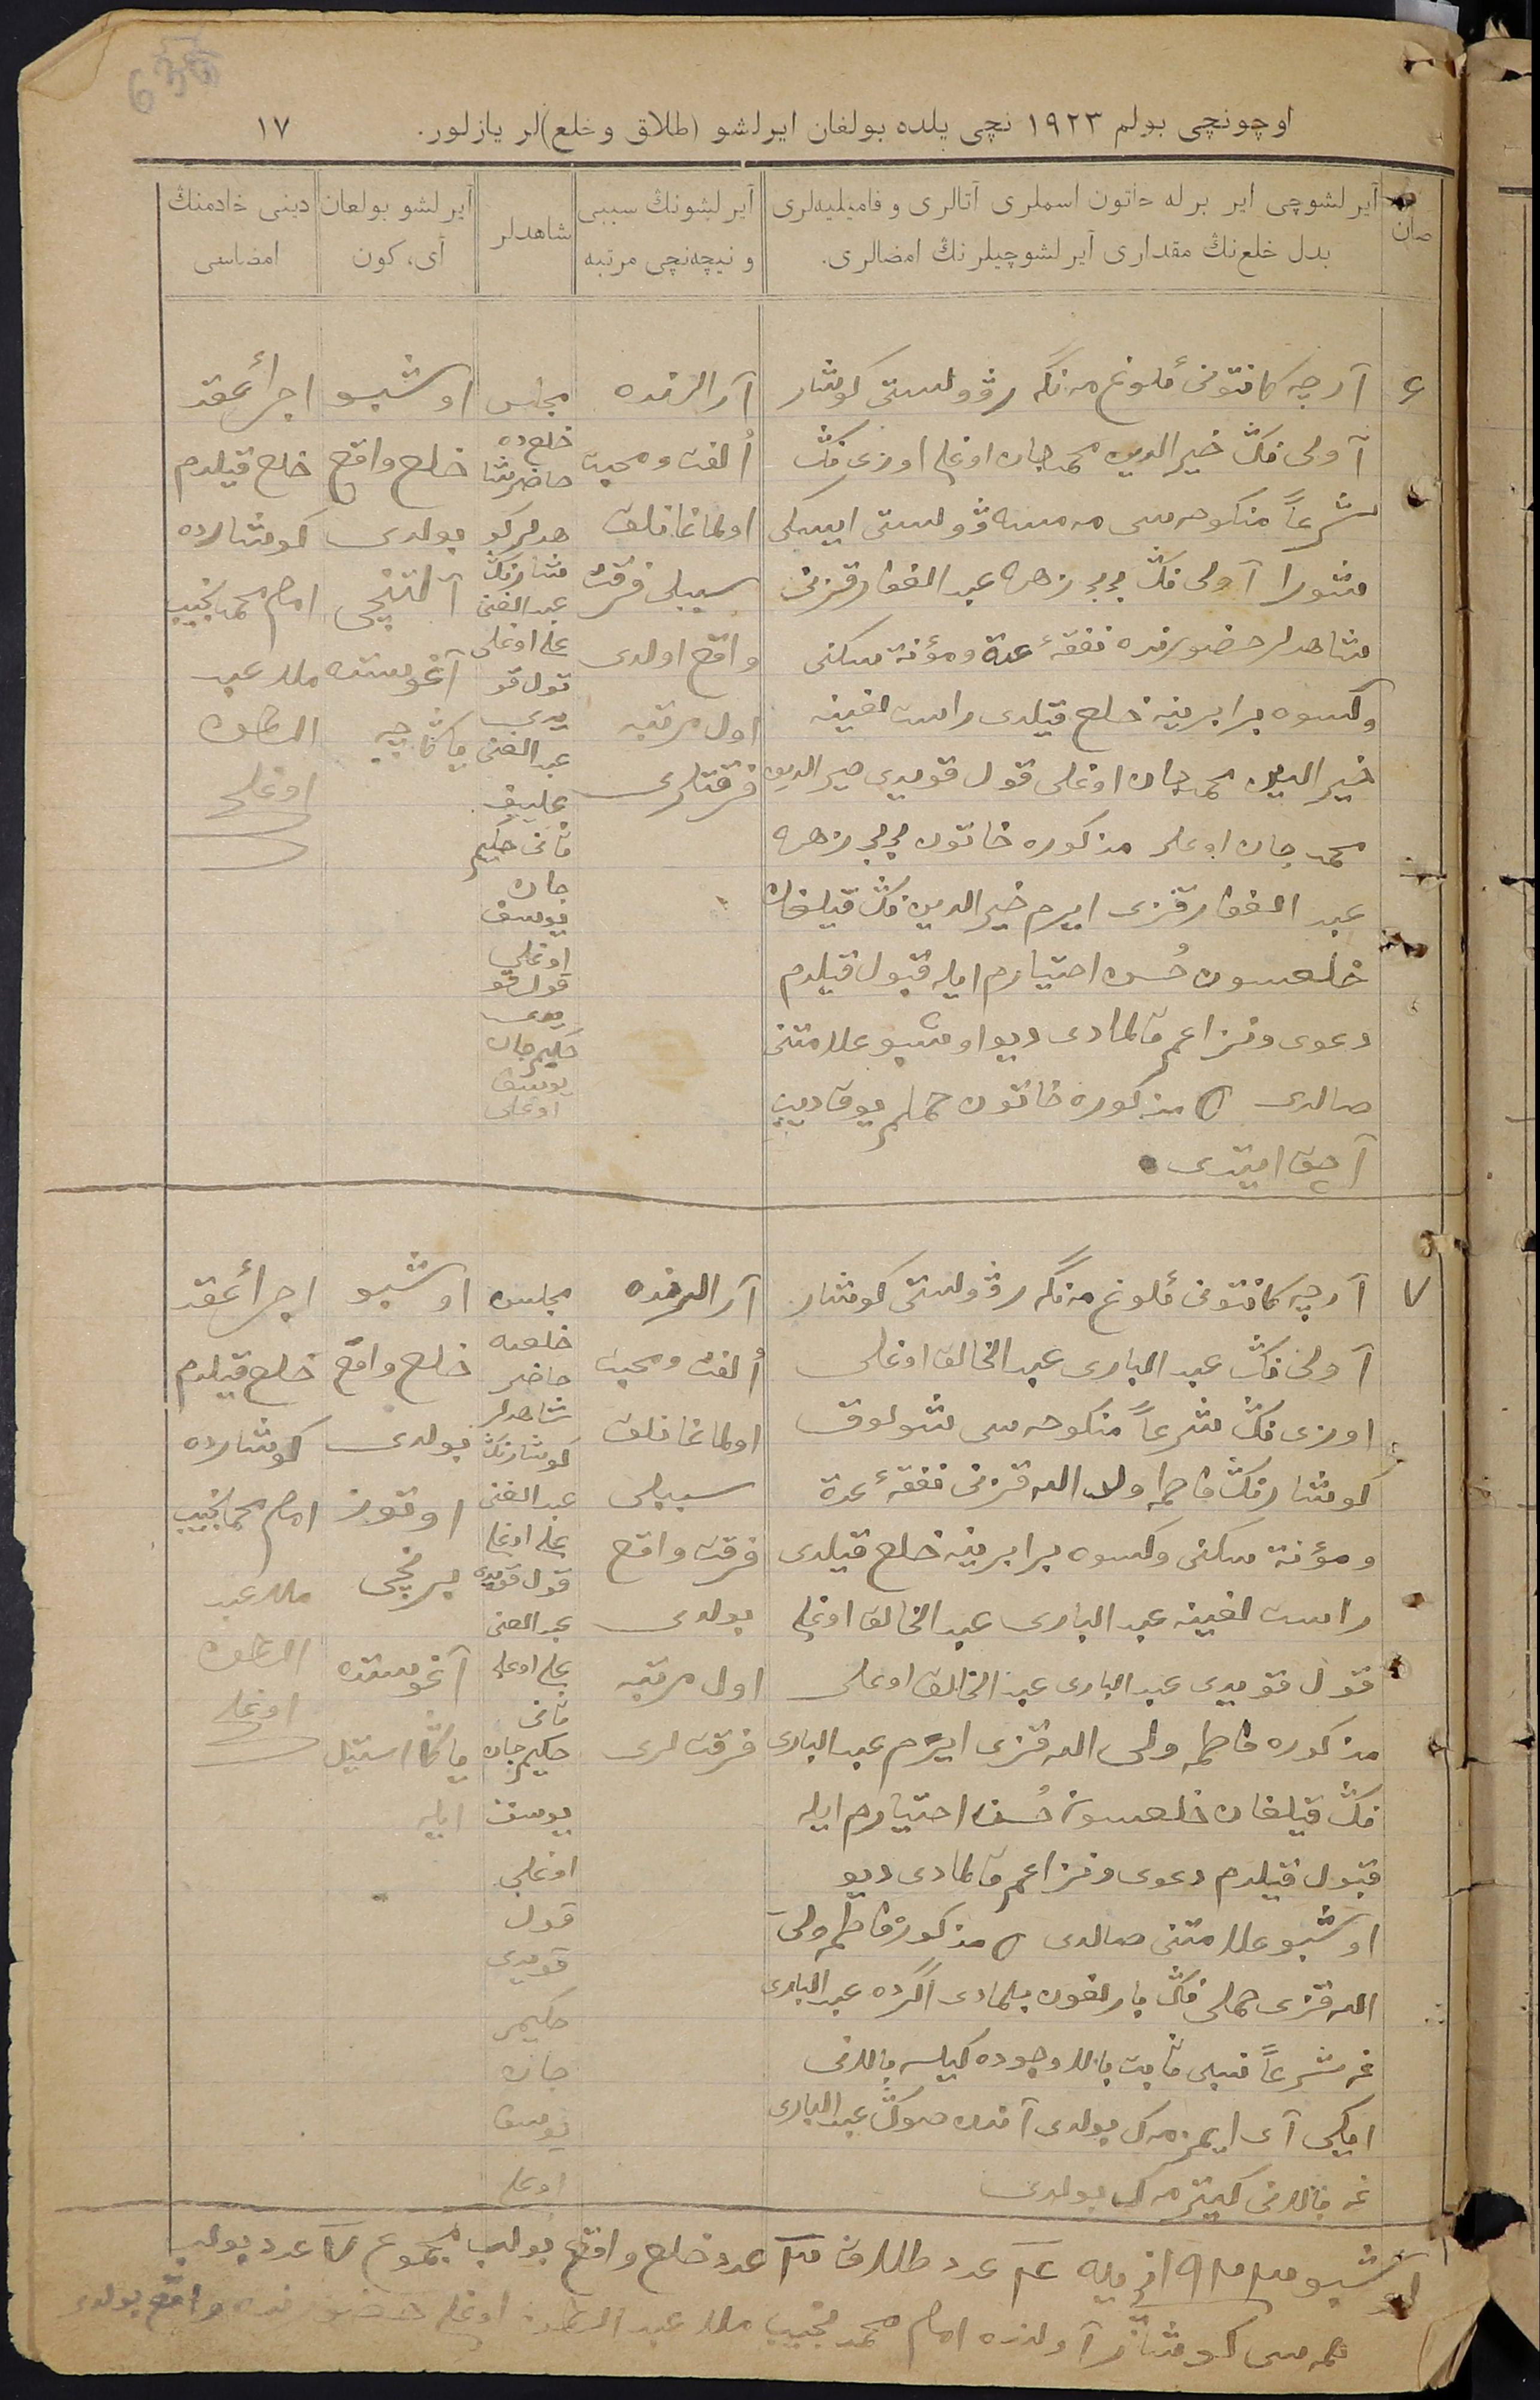 635
اوچونچی بولم ۱۹۲۳ نچی یلده بولغان ایرلشو (طلاق و خلع)لر یازلور.
۱۷
صان
آیرلشوچی ایر برله خاتون اسملری آتالری و فامیلیه‌لری
بدل خلع‌نڭ مقداری آیرلشوچیلرنڭ امضالری.
آیرلشونڭ سببی
و نیچه‌نچی مرتبه
شاهدلر
آیرلشو بولغان
آی، کون
دینی خادمنڭ
امضاسی
۶
آرچه کانتونی
کوشار
آولی نڭ خیرالدین محمدجان اوغلی اوزی نڭ
شرعاً منکوحه‌سی
ولستی ایسکی
آولی نڭ زهره عبد الغفار قزنی
شاهدلر حضورنده نفقهٔ عدة و مؤنة سکنی
و کسوه برابرینه خلع قیلدی راست لغینه
خیرالدین محمدجان اوغلی قول قویدی خیرالدین
محمدجان اوغلی مذکوره خاتون زهره
عبد الغفار قزی ایرم خیرالدین نڭ قیلغان
خلعسون حُسن اختیارم ایله قبول قیلدم
دعوی و نزاعم قالمادی دیو اوشبو علامتنی
صالدی مذکوره خاتون حملم یوق دیب
آچق ایتدی
آرالرنده
اُلفت و محبت
اولماغانلق
سببلی فرقت
واقع اولدی
اول مرتبه
فرقتلری
مجلس
خلع‌ده
حاضر شا
هدلر کو
شارنڭ
عبد الغنی
علی اوغلی
قول قو
یدی
عبد الغنی
علییف
ثانی حکیم
جان
یوسف
اوغلی
قول قو
یدی
حکیم جان
یوسف
اوغلی
اوشبو
خلع واقع
بولدی
آلتنچی
آغوستده
یاڭاچه
اجراٴ عقد
خلع قیلدم
کوشارده
امام محمد نجیب
ملا عبد
اوغلی
۷
آرچه کانتونی
کوشار
آولی نڭ عبد الباری عبد الخالق اوغلی
اوزی نڭ شرعاً منکوحه‌سی شولوق
کوشارنڭ فاطمه ولی الله قزنی نفقهٔ عدة
و مؤنة سکنی و کسوه برابرینه خلع قیلدی
راست لغینه عبد الباری عبد الخالق اوغلی
قول قویدی عبد الباری عبد الخالق اوغلی
مذکوره فاطمه ولی الله قزی ایرم عبد الباری
نڭ قیلغان خلعسون حُسن اختیارم ایله
قبول قیلدم دعوی و نزاعم قالمادی دیو
اوشبو علامتنی صالدی مذکوره فاطمه ولی
الله قزی حملی نڭ بارلغون بلمادی اگرده عبد الباری
غه شرعاً نسبی ثابت بالا وجوده کیلسه بالانی
ایکی آی ایمزمه‌ک بولدی آندن صوڭ عبد الباری
غه بالانی کیتزمه‌ک بولدی
آرالرنده
اُلفت و محبت
اولماغانلق
سببلی
فرقت واقع
بولدی
اول مرتبه
فرقت لری
مجلس
خلعه
حاضر
شاهدلر
کوشارنڭ
عبد الغنی
علی اوغلی
قول قویدی
عبد الغنی
علی اوغلی
ثانی
حکیم جان
یوسف
اوغلی
قول
قویدی
حکیم
جان
یوسف
اوغلی
اوشبو
خلع واقع
بولدی
اوتوز
برنچی
آغوستده
یاڭا استیل
ایله
اجراٴ عقد
خلع قیلدم
کوشارده
امام محمد نجیب
ملا عبد
اوغلی
اوشبو ۱۹۲۳ نچی یلده ۴ عدد طلاق ۳ عدد خلع واقع بولب مجموع ۷ عدد بولب
همه‌سی کوشار آولنده امام محمد نجیب ملا عبد اوغلی حضورنده واقع بولدی